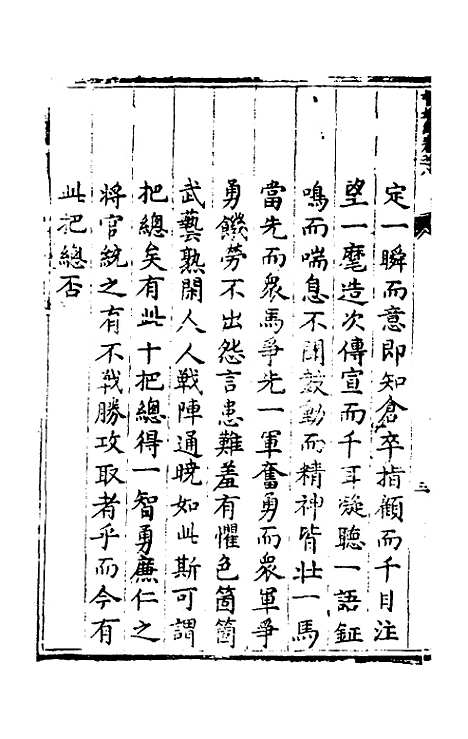 定一瞬而意即知倉卒指顧而千目注
望一麾造次傳宣而千耳凝聽一語鉦
鳴而喘息不聞鼓動而精神皆壯一馬
當先而衆馬爭先一軍奮勇而衆軍爭
勇饑勞不出怨言患難羞有懼色箇箇
武藝熟閑人人戰陣通曉如此斯可謂
把總矣有此十把總得一智勇廉仁之
將官統之有不戰勝攻取者乎而今有
此把總否
三